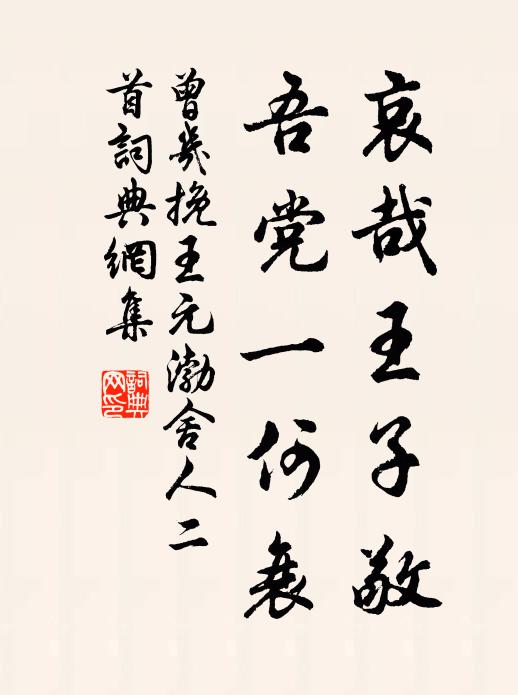 哀哉王子敬
吾党一何衰
曾幾挽王元渤舍人二
首詞典網集
詞典網印